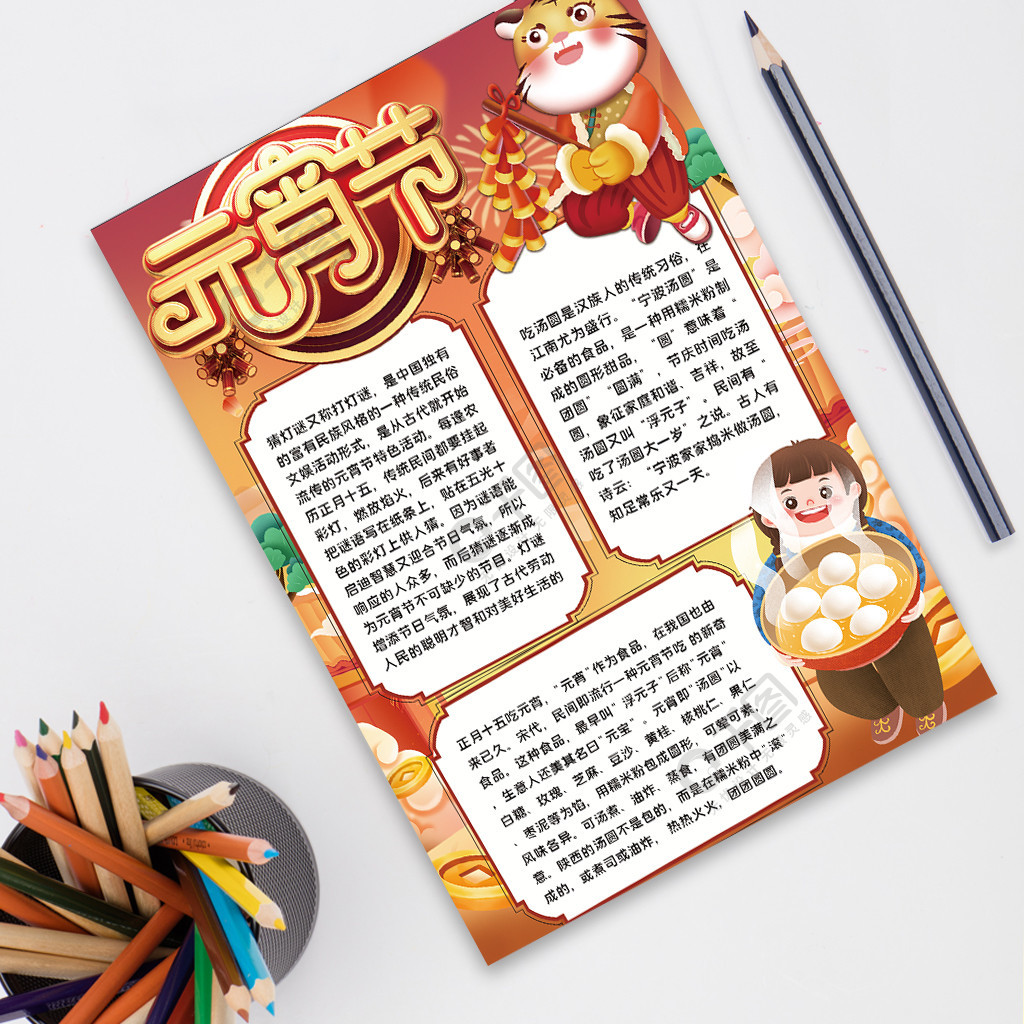 元宵节
猜灯谜又称打灯谜，是中国独有
的富有民族风格的一种传统民俗
文娱活动形式，是从古代就开始
流传的元宵节特色活动。每逢农
历正月十五，传统民间都要挂起
彩灯，燃放焰火，后来有好事者
把谜语写在纸条上，贴在五光十
色的彩灯上供人猜。因为谜语能
启迪智慧又迎合节日气氛，所以
响应的人众多，而后猜谜逐渐成
为元宵节不可缺少的节目。灯谜
增添节日气氛，展现了古代劳动
人民的聪明才智和对美好生活的
吃汤圆是汉族人的传统习俗，在
江南尤为盛行。“宁波汤圆”是
必备的食品，是一种用糯米粉制
成的圆形甜品，“圆”意味着“
团圆”“圆满”，节庆时间吃汤
圆，象征家庭和谐、吉祥，故至
汤圆又叫“浮元子”。民间有“
吃了汤圆大一岁”之说。古人有
诗云：“宁波家家捣米做汤圆，
知足常乐又一天。
正月十五吃元宵，“元宵”作为食品，在我国也由
来已久。宋代，民间即流行一种元宵节吃的新奇
食品。这种食品，最早叫“浮元子”后称“元宵”
，生意人还美其名曰“元宝”。元宵即“汤圆”以
白糖、玫瑰、芝麻、豆沙、黄桂、核桃仁、果仁
、枣泥等为馅，用糯米粉包成圆形，可荤可素，
风味各异。可汤煮、油炸、蒸食，有团圆美满之
意。陕西的汤圆不是包的，而是在糯米粉中“滚”
成的，或煮司或油炸，热热火火，团团圆圆。